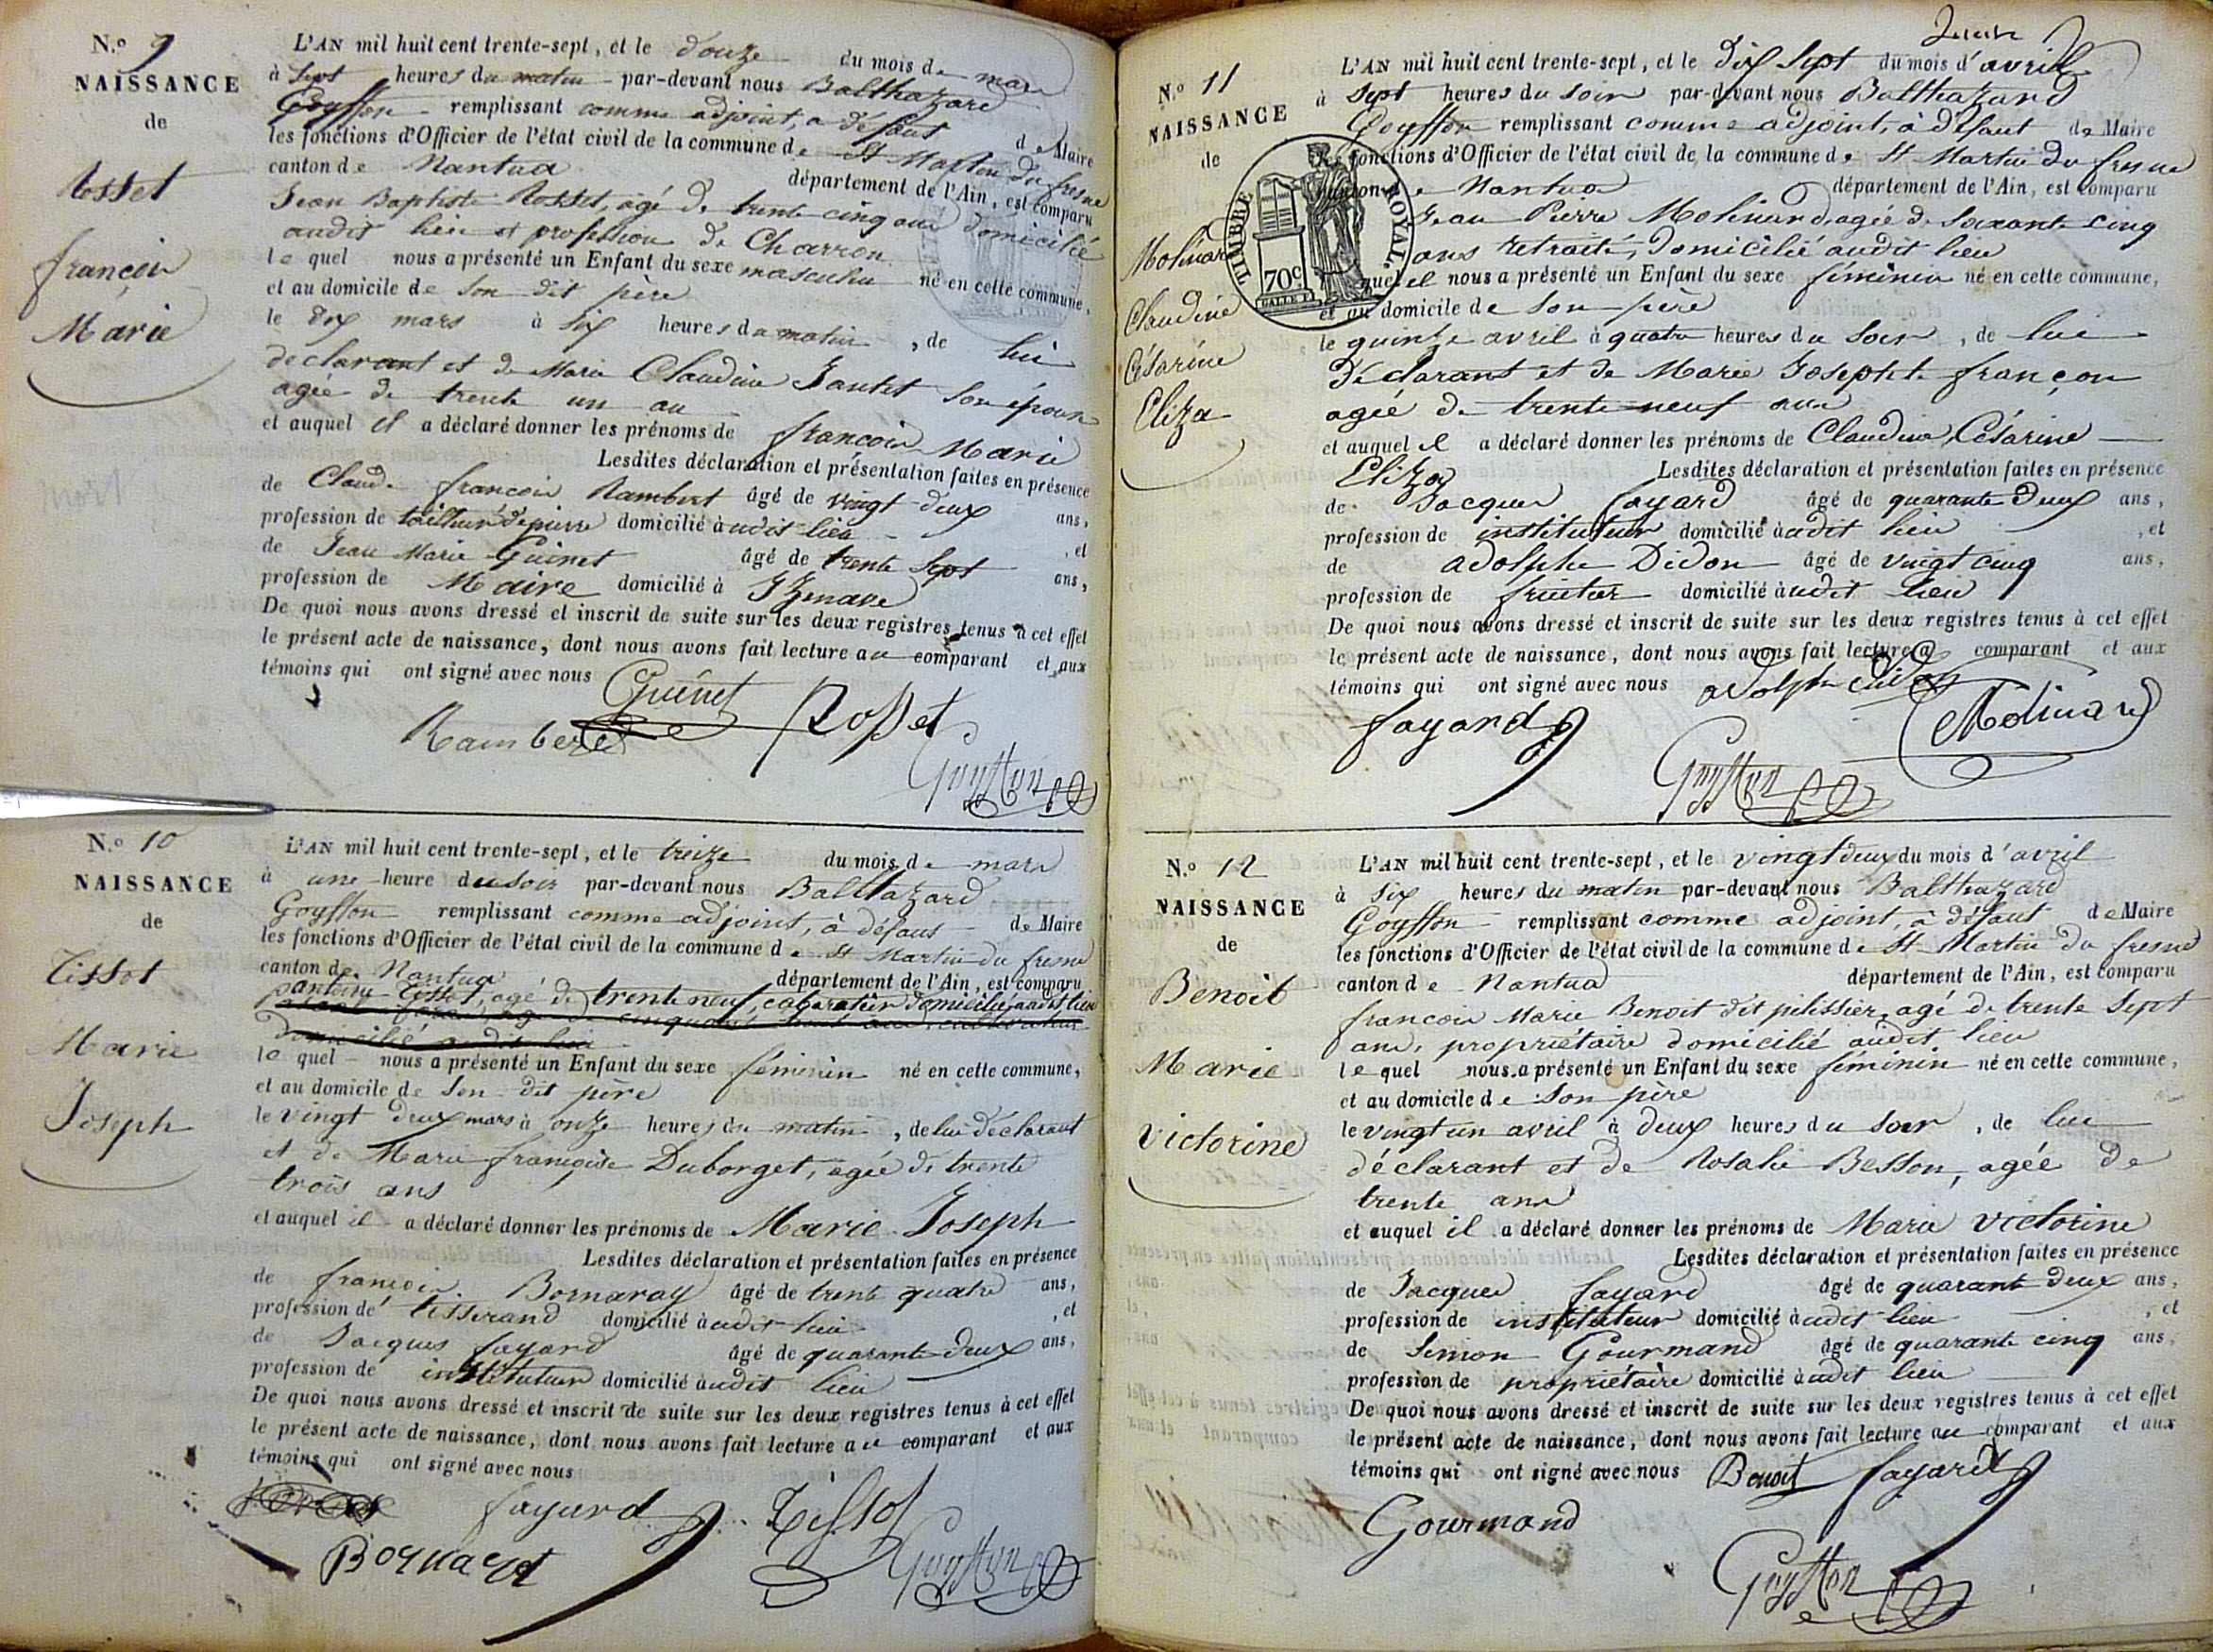 N.° 9
NAISSANCE
de
Rosset
françois
Marie
L'AN mil huit cent trente-sept, et le douze du mois de mars
à sept heures du matin par-devant nous Balthazard
Goyffon remplissant comme adjoint, à défaut de Maire
les fonctions d'Officier de l'état civil de la commune de St Martin du fresne
canton de Nantua département de l'Ain, est comparu
Jean Baptiste Rosset, agé de trente cinq ans domicilié
audit lieu et profession de Charron
lequel nous a présenté un Enfant du sexe masculin né en cette commune,
et au domicile de son dit père
le dix mars à six heures du matin, de lui
déclarant et de Marie Claudine Jantet son épouse
agée de trente un an
et auquel il a déclaré donner les prénoms de françois Marie
Lesdites déclaration et présentation faites en présence
de Claude françois Rambert âgé de vingt deux ans,
profession de tailleur de pierre domicilié à audit lieu, et
de Jean Marie Guinet âgé de trente sept ans,
profession de Maire domicilié à Izenave
De quoi nous avons dressé et inscrit de suite sur les deux registres tenus à cet effet
le présent acte de naissance, dont nous avons fait lecture au comparant et aux
témoins qui ont signé avec nous
Guinet Rosset
Rambert
Goyffon
N.° 10
NAISSANCE
de
Tissot
Marie
Joseph
L'AN mil huit cent trente-sept, et le treize du mois de mars
à une heure du soir par-devant nous Balthazard
Goyffon remplissant comme adjoint, à défaut de Maire
les fonctions d'Officier de l'état civil de la commune de St Martin du fresne
canton de Nantua département de l'Ain, est comparu
antoine Tissot, agé de trente neuf, cabaretier domicilié audit lieu
domicilié audit lieu
lequel nous a présenté un Enfant du sexe féminin né en cette commune,
et au domicile de son dit père
le vingt deux mars à onze heures du matin, de lui déclarant
et de Marie françoise Duborget, agée de trente
trois ans
et auquel il a déclaré donner les prénoms de Marie Joseph
Lesdites déclaration et présentation faites en présence
de françois Bornaray âgé de trente quatre ans,
profession de tisserand domicilié à audit lieu, et
de Jacques fayard âgé de quarante deux ans,
profession de instituteur domicilié à audit lieu
De quoi nous avons dressé et inscrit de suite sur les deux registres tenus à cet effet
le présent acte de naissance, dont nous avons fait lecture au comparant et aux
témoins qui ont signé avec nous
fayard Tissot
Goyffon
N.° 11
NAISSANCE
de
Molinard
Claudine
Césarine
Eliza
TIMBRE ROYAL
70c
L'AN mil huit cent trente-sept, et le dix sept du mois d'avril
à sept heures du soir par-devant nous Balthazard
Goyffon remplissant comme adjoint, à défaut de Maire
les fonctions d'Officier de l'état civil de la commune de St Martin du fresne
canton de Nantua département de l'Ain, est comparu
Jean Pierre Molinard, agé de soixante cinq
ans retraité, domicilié audit lieu
lequel nous a présenté un Enfant du sexe féminin né en cette commune,
et au domicile de son père
le quinze avril à quatre heures du soir, de lui
déclarant et de Marie Josephte françon
agée de trente neuf ans
et auquel il a déclaré donner les prénoms de Claudine, Césarine
Eliza Lesdites déclaration et présentation faites en présence
de Jacques fayard âgé de quarante deux ans,
profession de instituteur domicilié à audit lieu, et
de adolphe Didon âgé de vingt cinq ans,
profession de fruitier domicilié à audit lieu
De quoi nous avons dressé et inscrit de suite sur les deux registres tenus à cet effet
le présent acte de naissance, dont nous avons fait lecture au comparant et aux
témoins qui ont signé avec nous adolphe didon
fayard Molinard
Goyffon
N.° 12
NAISSANCE
de
Benoit
Marie
Victorine
L'AN mil huit cent trente-sept, et le vingt deux du mois d'avril
à six heures du matin par-devant nous Balthazard
Goyffon remplissant comme adjoint, à défaut de Maire
les fonctions d'Officier de l'état civil de la commune de St Martin du fresne
canton de Nantua département de l'Ain, est comparu
françois Marie Benoit dit pélissier, agé de trente sept
ans, propriétaire domicilié audit lieu
lequel nous a présenté un Enfant du sexe féminin né en cette commune,
et au domicile de son père
le vingt un avril à deux heures du soir, de lui
déclarant et de Rosalie Besson, agée de
trente ans
et auquel il a déclaré donner les prénoms de Marie Victorine
Lesdites déclaration et présentation faites en présence
de Jacques fayard âgé de quarante deux ans,
profession de instituteur domicilié à audit lieu, et
de Simon Gourmand âgé de quarante cinq ans,
profession de propriétaire domicilié à audit lieu
De quoi nous avons dressé et inscrit de suite sur les deux registres tenus à cet effet
le présent acte de naissance, dont nous avons fait lecture au comparant et aux
témoins qui ont signé avec nous Benoit fayard
Gourmand
Goyffon